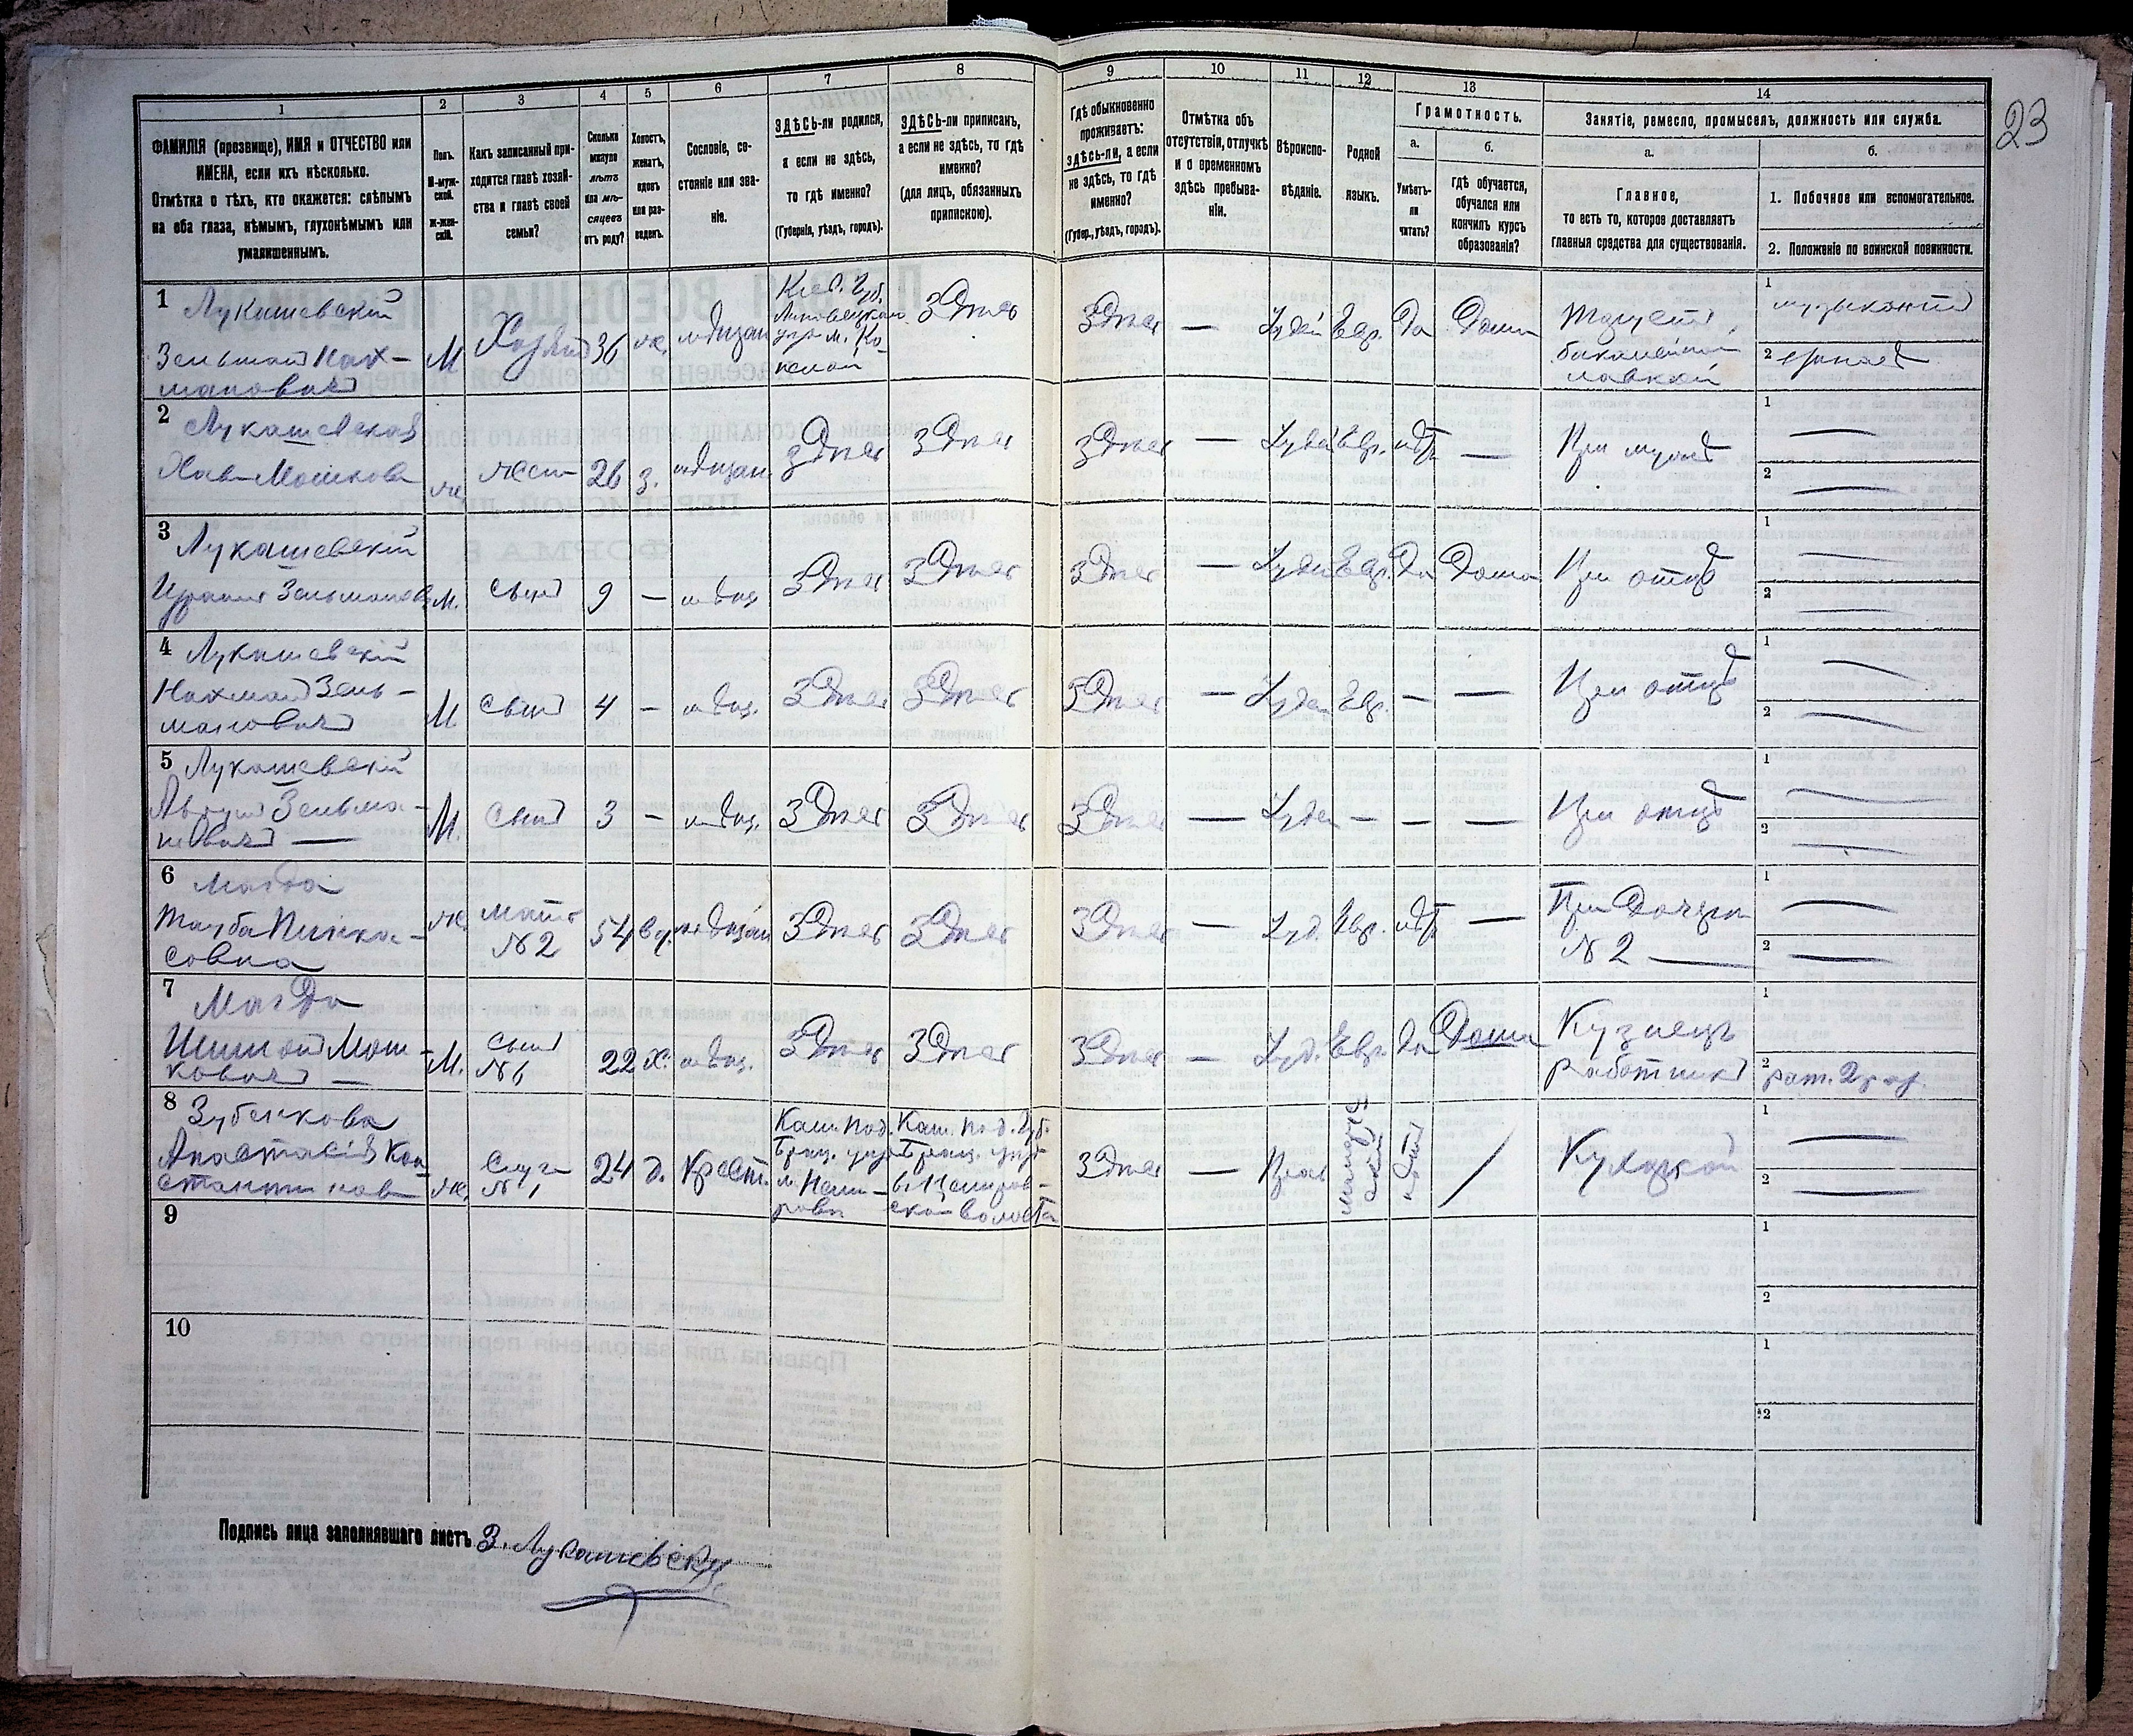 23
1
2
3
4
5
6
7
8
9
10
11
12
13
14
ФАМИЛІЯ (прозвище), ИМЯ и ОТЧЕСТВО или
ИМЕНА, если ихъ нѣсколько.
Отмѣтка о тѣхъ, кто окажется: слѣпымъ
на оба глаза, нѣмымъ, глухонѣмымъ или
умалишеннымъ.
Полъ.
М-муж-
ской.
Ж-жен-
скій.
Какъ записанный при-
ходится главѣ хозяй-
ства и главѣ своей
семьи?
Сколько
минуло
лѣтъ
или мѣ-
сяцевъ
отъ роду?
Холостъ,
женатъ,
вдовъ
или раз-
веденъ.
Сословіе, со-
стояніе или зва-
ніе.
ЗДѢСЬ-ли родился,
а если не здѣсь,
то гдѣ именно?
(Губернія, уѣздъ, городъ).
ЗДѢСЬ-ли приписанъ,
а если не здѣсь, то гдѣ
именно?
(для лицъ, обязанныхъ
припискою).
Гдѣ обыкновенно
проживаетъ:
здѣсь-ли, а если
не здѣсь, то гдѣ
именно?
(Губер., уѣздъ, городъ).
Отмѣтка объ
отсутствіи, отлучкѣ
и о временномъ
здѣсь пребыва-
ніи.
Вѣроиспо-
вѣданіе.
Родной
языкъ.
Грамотность.
а.
Умѣетъ-
ли
читать?
б.
гдѣ обучается,
обучался или
кончилъ курсъ
образованія?
Занятіе, ремесло, промыселъ, должность или служба.
а.
Главное,
то есть то, которое доставляетъ
главныя средства для существованія.
б.
1. Побочное или вспомогательное.
2. Положеніе по воинской повинности.
1 Лукашевскій
Зельман Нах-
манович
М Хозяин 36 ж. мѣщан
Кіев. Губ.
Липовецкого
уѣз. м.
здѣсь здѣсь — Іудей Евр. Да Дома
лавкой
1 музыкант
2
2 Лукашевская
Хая Мошкова
ж. жена 26 з. мѣщан. здѣсь здѣсь здѣсь — Іудей Евр. нѣт — При мужѣ
1 —
2 —
3 Лукашевскій
Израиль Зельманов
М. Сын 9 — мѣщ здѣсь здѣсь здѣсь — Іудей Евр. Да Дома При отцѣ
1 —
2 —
4 Лукашевскій
Нахман Зель-
манович
М. Сын 4 — мѣщ. здѣсь здѣсь здѣсь — Іудей Евр. — — При отцѣ
1 —
2 —
5 Лукашевскій
Зельма-
нович —
М. Сын 3 — мѣщ. здѣсь здѣсь здѣсь — Іудей — — — При отцѣ
1 —
2 —
6 Магда
Тауба Пинка-
совна
ж. мать
№ 2
54 вд. мѣщан здѣсь здѣсь здѣсь — Іуд. Евр. нѣт — При Дочери
№ 2 —
1 —
2 —
7 Магда
Шимон Мош-
кович —
М. Сын
№ 6
22 х. мѣщ. здѣсь здѣсь здѣсь — Іуд. Евр. Да Дома Кузнецъ
работник
1
2 рат. 2 раз.
8 Зубенкова
Анастасія Кон-
стантинов
ж. Слуга
№ 1
24 д. Крест.
Кам. Под.
Брац. уѣзд
м. Неми-
рова
Кам. Под. Губ.
Брац. уѣзд
в. Немиров-
ско волости
здѣсь — Прав нѣт / Кухаркой
1 —
2 —
9
1
2
10
1
2
Подпись лица заполнявшаго листъ З. Лукашевскій